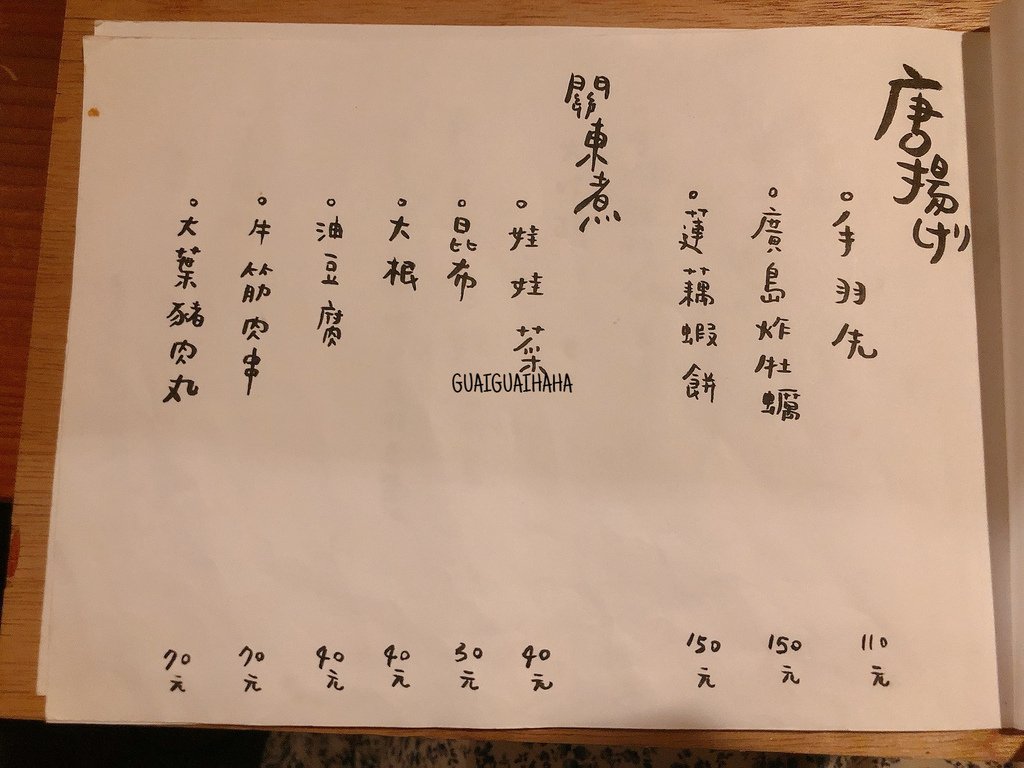 唐揚げ
。手羽先 110元
。廣島炸牡蠣 150元
。蓮藕蝦餅 150元
關東煮
。娃娃菜 40元
。昆布 30元
。大根 40元
。油豆腐 40元
。牛筋肉串 70元
。大葉豬肉丸 70元
GUAIGUAIHAHA